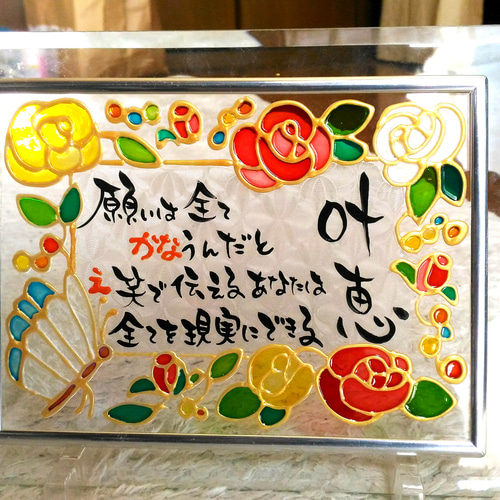 叶恵
願いは全て
かなうんだと
え笑で伝えるあなたは
全てを現実にできる